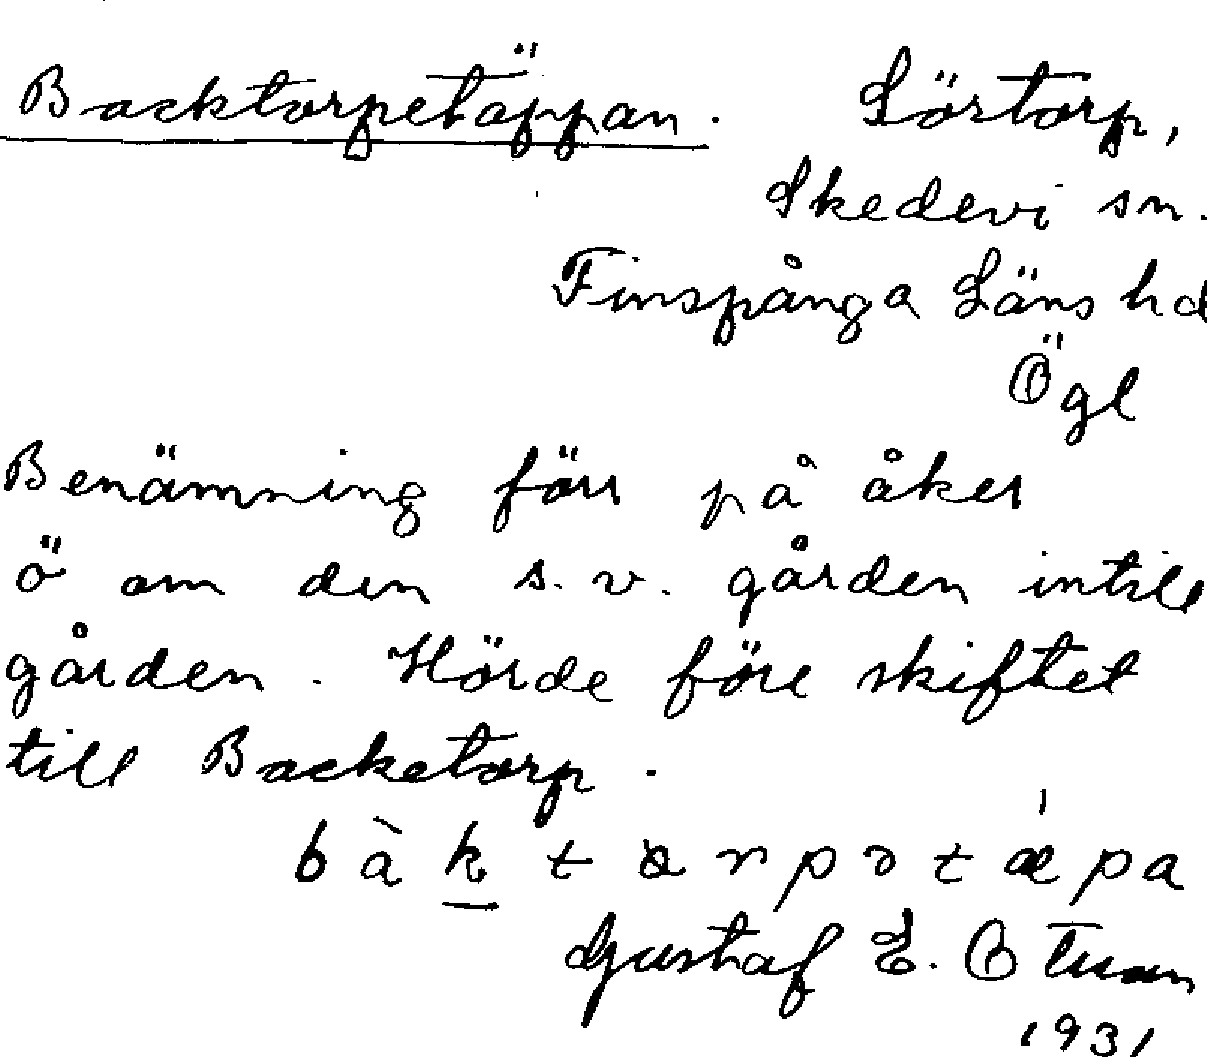 Backtorpetäppan. Sörtorp,
Skedevi sn.
Finspånga Läns hd
Ögl
Benämning förr på åker
ö om den s.v. gården intill
gården. Hörde före skiftet
till Backetorp.
bàk̲tɷrpətǽpa
Gustaf E.
1931